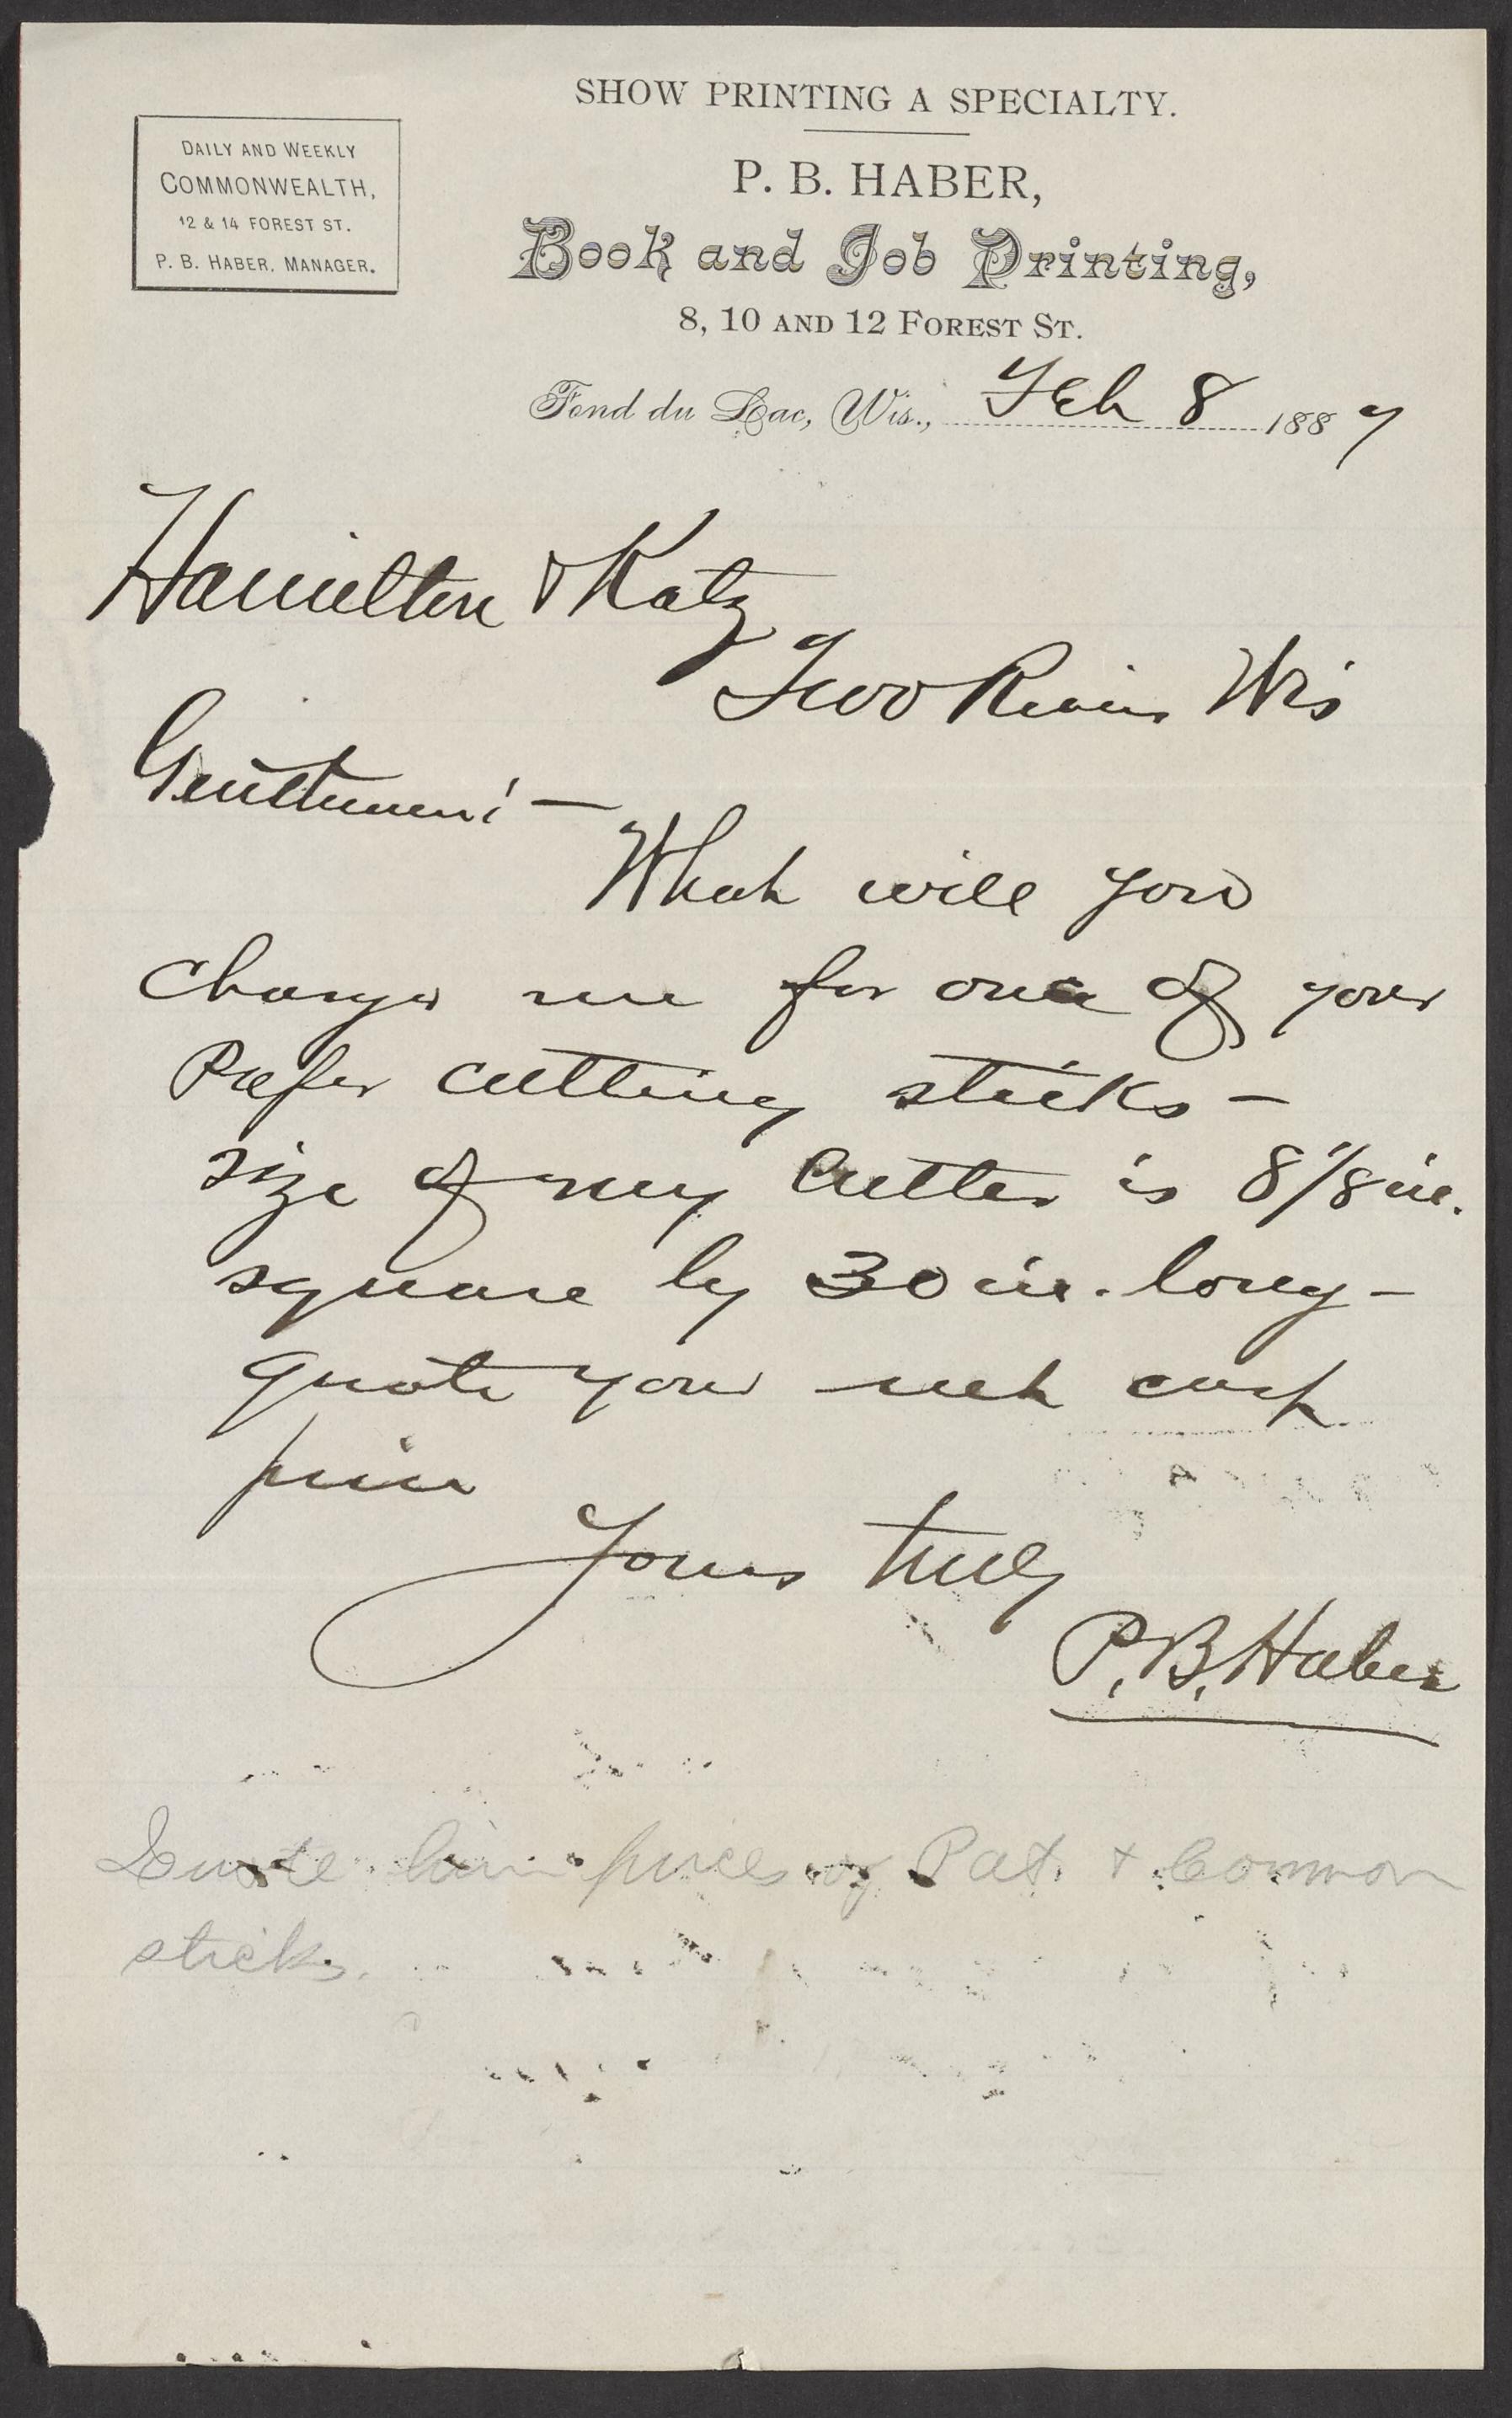 SHOW PRINTING A SPECIALTY.
DAILY AND WEEKLY
COMMONWEALTH,
12 & 14 FOREST ST.
P. B. HABER, MANAGER.
P. B. HABER,
Book and Job Printing,
8, 10 AND 12 FOREST ST.
Fond du Lac, Wis., Feb 8 1887
Hamilton & Katz
Two Rivers Wis
Gentlemen: —
What will you
charge me for one of your
Paper cutting sticks —
size of my Cutter is 8/8 in.
square by 30 in. long —
quote your net cash
price
Yours truly
P. B. Haber
Quote him prices of Pat. & Common
sticks.